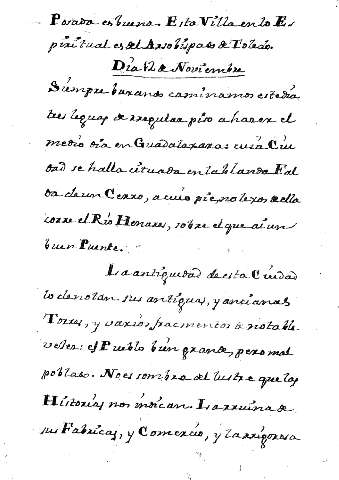 Posada es buena. Esta Villa en lo Es
piritual es del Arzobispado de Toledo.
Dia 12 de Noviembre
Siempre buxando caminamos este dia
tres leguas de irregular piso a hacer el
medio dia en Guadalaxara: cuia Ciu
dad se halla situada en la blanda Fal
da de un Cerro, a cuio pie, no lexos de ella
corre el Rio Henares, sobre el que ai un
buen Puente.
La antiguedad de esta Ciudad
lo denotan sus antiguas, y ancianas
Torres, y varios fracmentos o notable
vejez: el Pueblo bien grande, pero mal
poblado. No es sombra del lustre que las
Historias nos indican. La ruina de
sus Fabricas, y Comercio, y la rigorosa